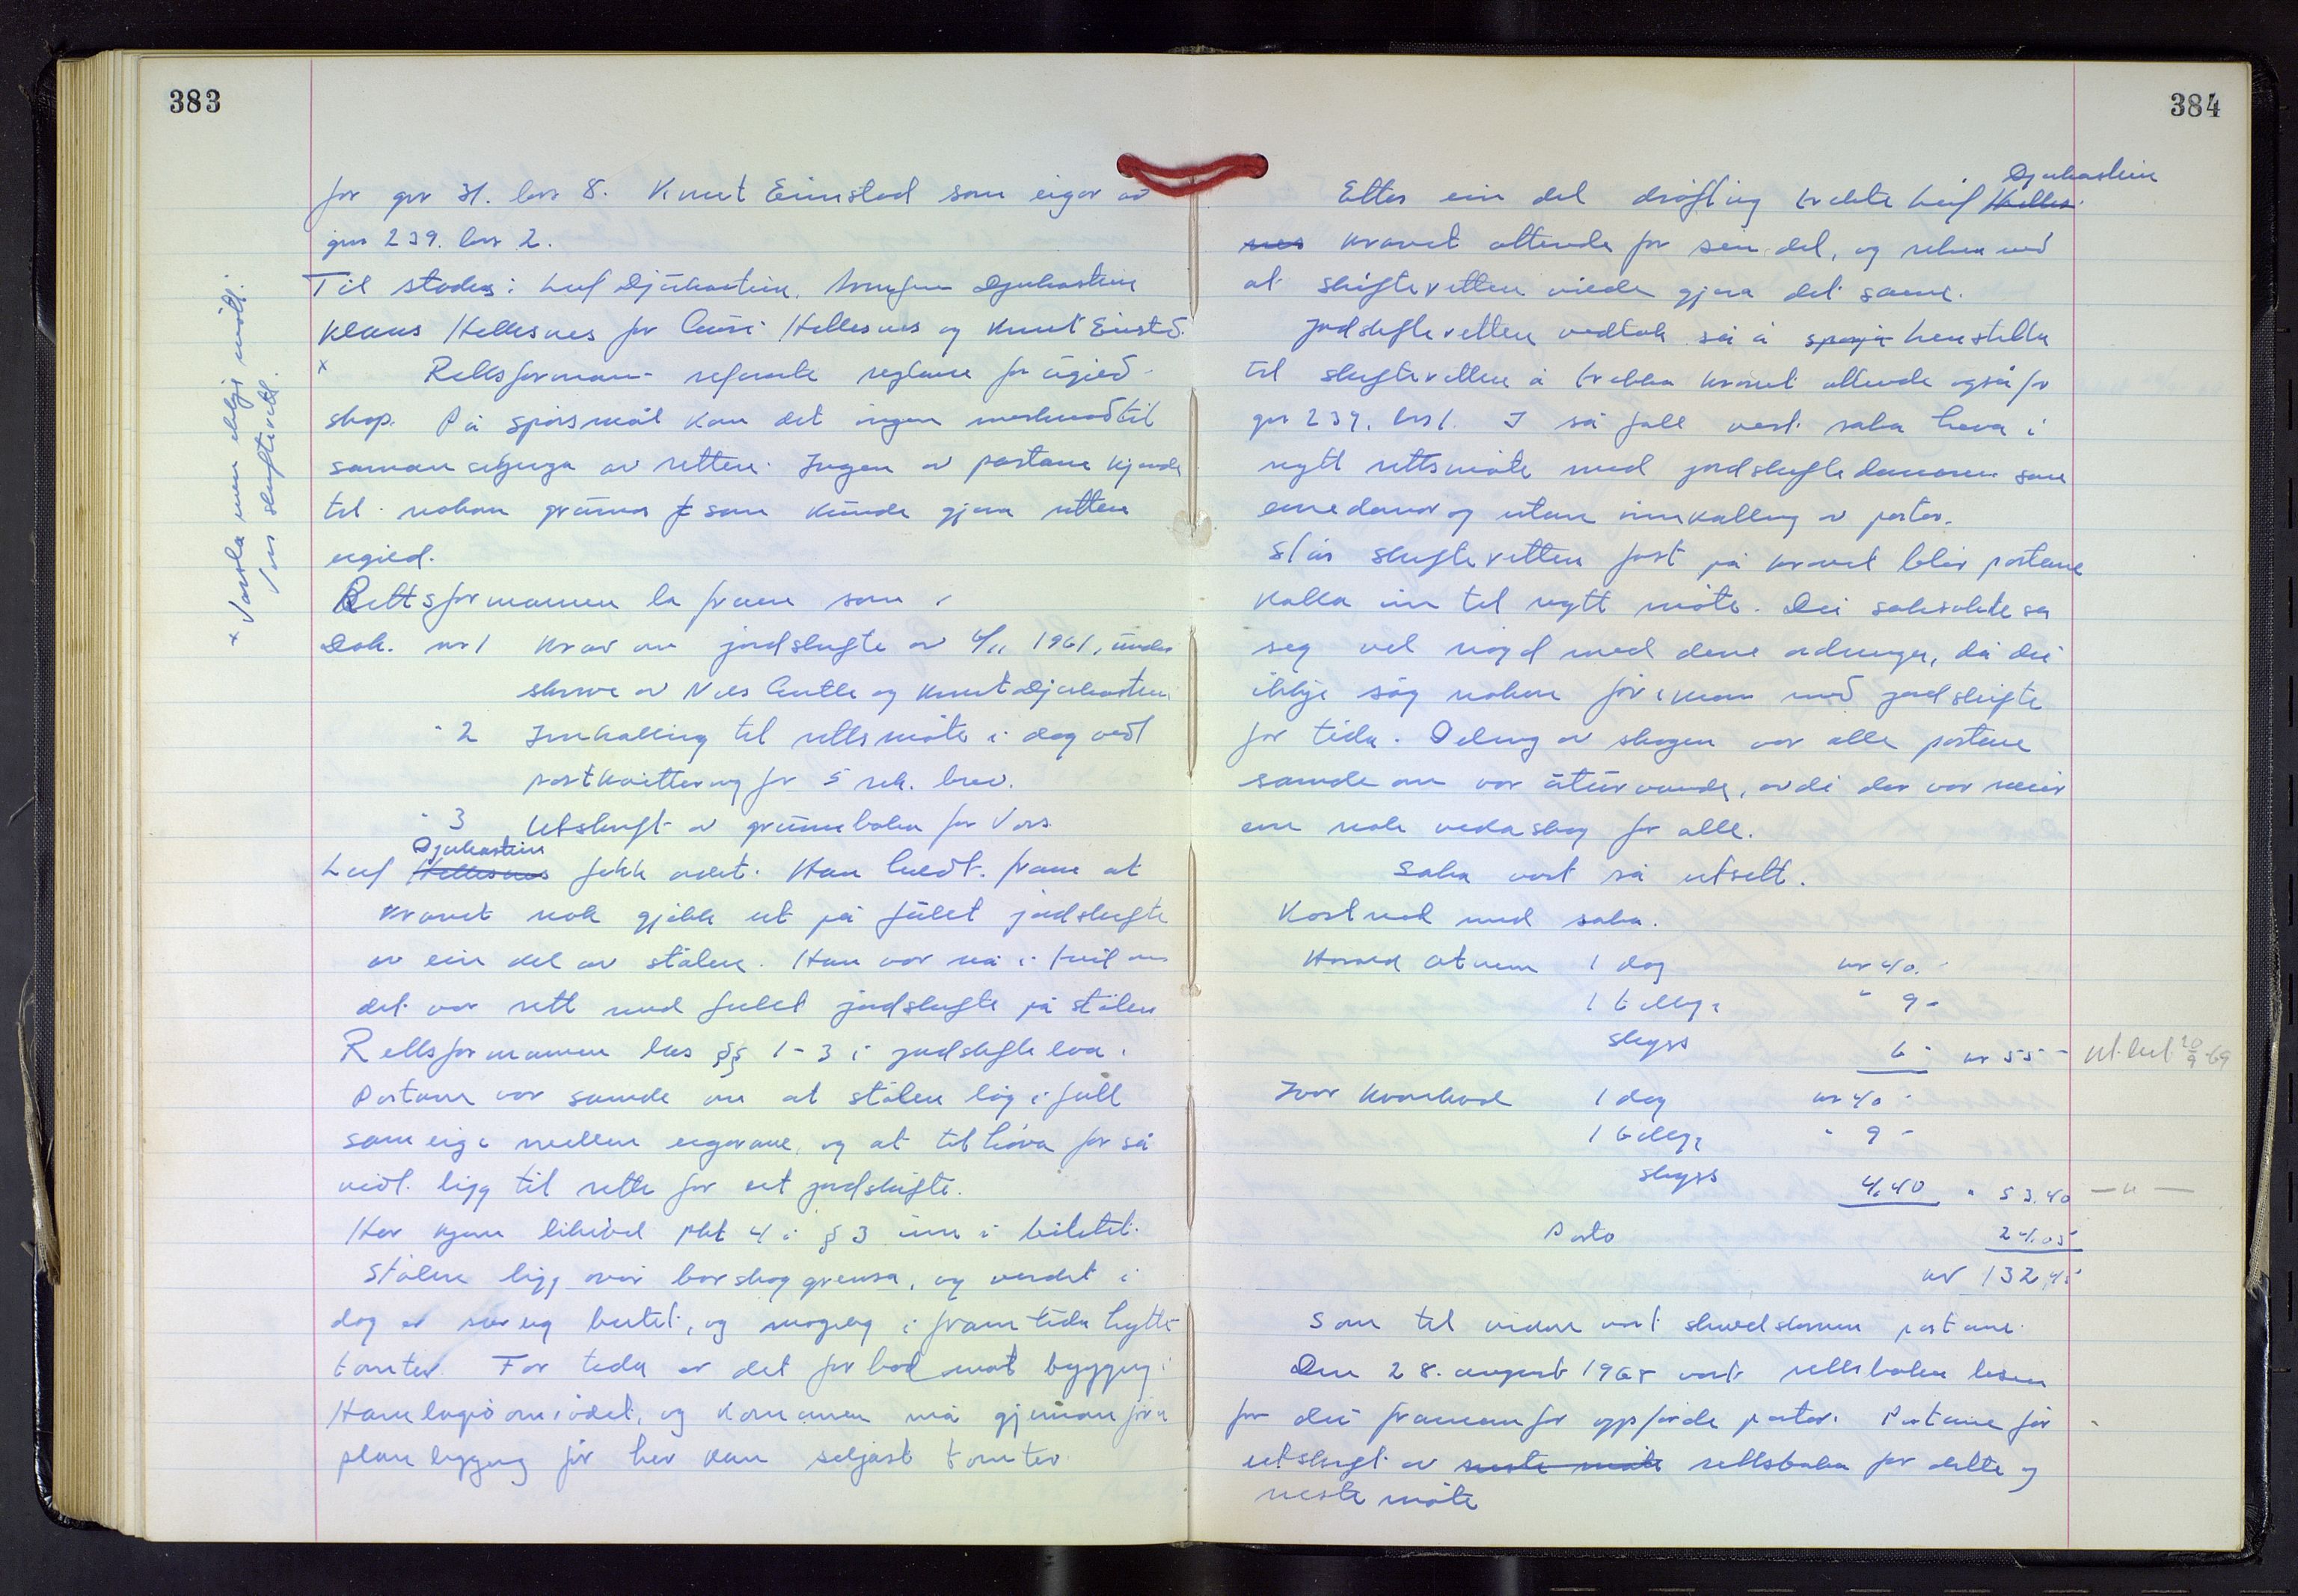 383
for gnr 31. bnr 8. Knut Einstad som eigar av
gnr 239. bnr 2.
Til stades: Leif Djukastein, Djukastein
Klaus Hellesnes for Hellesnes og Knut Einstad.
x Rettsformann refererte reglane for ugild-
skap. På spørsmål kom det ingen merknad til
samansetjinga av retten. Ingen av partane kjende
til nokon grunn som kunde gjera retten
ugild.
Rettsformannen la fram som
Dok. nr 1 Krav om jordskifte av 4/11 1961, under
skrive av Nils og Knut Djukastein
" 2 Innkalling til rettsmøte i dag vedl
postkvittering for 5 rek. brev.
" 3 Utskrift av grunnboka for Voss
Djukastein
Leif Hellesnes fekk ordet. Han heldt fram at
kravet nok gjekk ut på fullt jordskifte
av ein del av stølen. Han var nå i tvil om
det var rett med fullt jordskifte på stølen
Rettsformannen las §§ 1-3 i jordskiftelova.
Partane var samde om at stølen låg i full
sameige mellom eigarane, og at tilhøva for så
vidt ligg til rette for eit jordskifte.
Her kjem likevel pkt 4 i § 3 inn i biletet.
Stølen ligg over barskoggrensa, og verdet i
dag er sæleg beitet, og mogleg i framtida hytte
tomter. For tida er det forbod mot bygging i
Hamlagrøområdet, og komunen må gjennomføra
planlegging før her kan seljast tomter.
x Varsla men ikkje møtt:
Voss skifterett.
384
Djukastein
Etter ein del drøfting trekte Leif Helles-
nes kravet attende for sin del, og rekna med
at skifteretten vilde gjera det same.
Jordskifteretten vedtok så å spørja henstilla
til skifteretten å trekka kravet attende også for
gnr 239. bnr 1. I så fall vert saka heva i
nytt rettsmøte med jordskiftedomaren som
einedomar og utan innkalling av partar.
Står skifteretten fast på kravet blir partane
kalla inn til nytt møte. Dei saksøkte sa
seg vel nøgd med denne ordninga, då dei
ikkje såg nokon føremon med jordskifte
for tida. Deling av skogen var alle partane
samde om var uturvande, avdi der var meir
enn nok vedaskog for alle.
Saka vart så utsett.
Kostnad med saka.
Harald Otnem 1 dag kr 40.-
1 tillegg " 9 -
skyss 6 - kr 55 - utbet 20/9-69
Ivar Kvarekvål 1 dag kr 40 -
1 tillegg " 9 -
skyss 4,40 " 53.40 — " —
Porto 24.05
kr 132,45
Som til vidare vart skuldskriven partane.
Den 28. august 1968 vart rettsboka lesen
for dei framanfor oppførde partar. Partane får
utskrift av neste møte rettsboka for dette og
neste møte